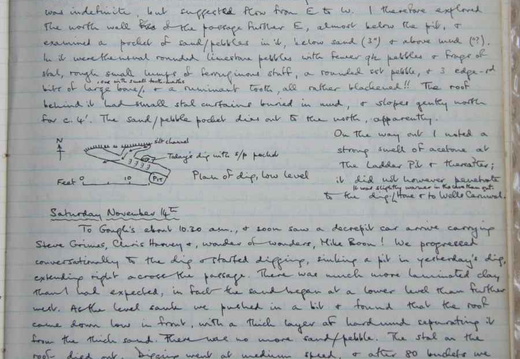 was indefinite, but suggested flow from E to W. I therefore explored
the north wall of the passage further E, almost below the pit, &
examined a pocket of sand/pebbles in it, below sand (3") & above mud (?).
In it were the usual rounded limestone pebbles with fewer qtz pebbles & frags of
stal, rough small lumps of ferruginous stuff, a rounded sst pebble, & 3 edge-rd
one with small tooth marks
bits of large bone, & a ruminant tooth, all rather blackened!! The roof
behind it had small stal curtains buried in sand, & slopes gently north
for c. 4'. The sand/pebble pocket dies out to the north, apparently.
N
silt channel
Today's dig with s/p pocket
Feet 0 10
Pit
Plan of dig, low level
On the way out I noted a
strong smell of acetone at
the Ladder Pit & thereafter;
it did not however penetrate
It was slightly warmer in the cave than out
to the dig. Home & to Wells Carnival.
Saturday November 14th
To Gough's about 10.20 am., & soon saw a decrepit car arrive carrying
Steve Grimes, Chris Harvey &, wonder of wonders, Mike Boon! We progressed
conversationally to the dig & started digging, sinking a pit in yesterday's dig,
extending right across the passage. There was much more laminated clay
than I had expected, in fact the sand began at a lower level than further
west. As the level sank we pushed in a bit & found that the roof
came down low in front, with a thick layer of hard mud separating it
from the thick sand. There was no more sand/pebble. The stal on the
roof died out. Digging went at medium speed, & after 80 buckets we